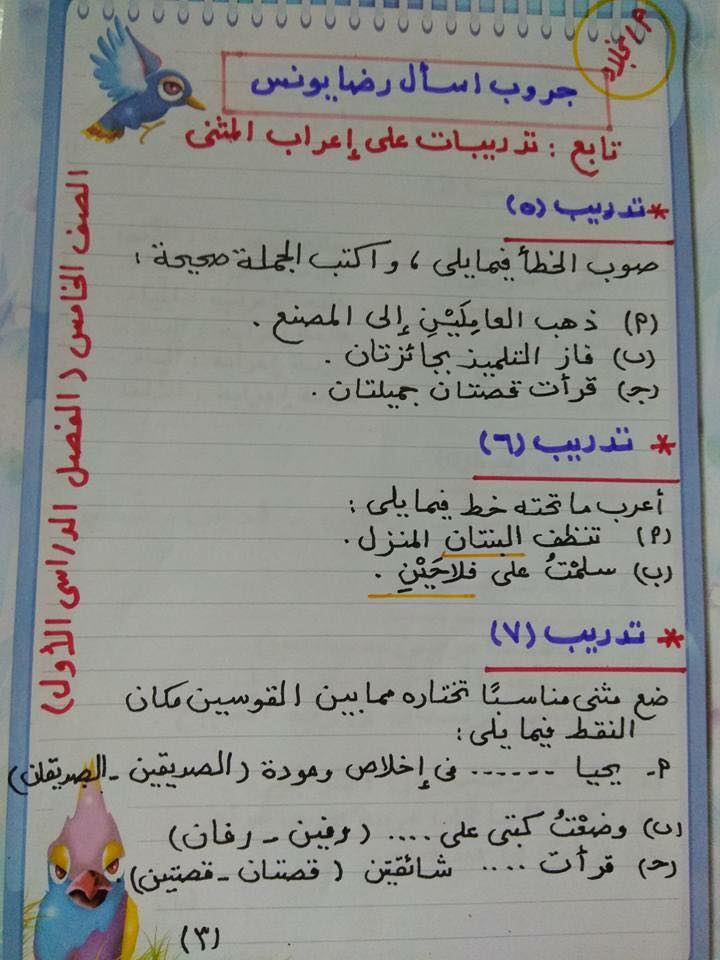 م/نجلاء
جروب اسأل رضا يونس
تابع : تدريبات على إعراب المثنى
الصف الخامس ( الفصل الدراسى الأول )
* تدريب (٥)
صوب الخطأ فيما يلى ، واكتب الجملة صحيحة :
(أ) ذهب العامِلَيْنِ إلى المصنع .
(ب) فاز التلميذ بجائزتان .
(جـ) قرأت قصتان جميلتان .
* تدريب (٦)
أعرب ما تحته خط فيما يلى :
(أ) تنظف البنتان المنزل .
(ب) سلمْتُ على فلاحَيْنِ .
* تدريب (٧)
ضع مثنى مناسبًا تختاره مما بين القوسين مكان
النقط فيما يلى :
أ- يحيا ...... فى إخلاص ومودة (الصديقين - الصديقان)
(ب) وضعْتُ كتبى على .... (رفين - رفان)
(حـ) قرأت .... شائقتين (قصتان - قصتين).
(٣)